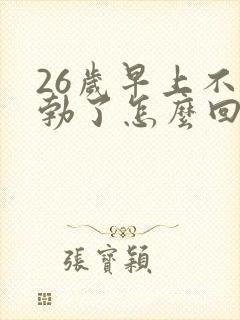 26歲早上不
勃了怎麼回
張寶穎